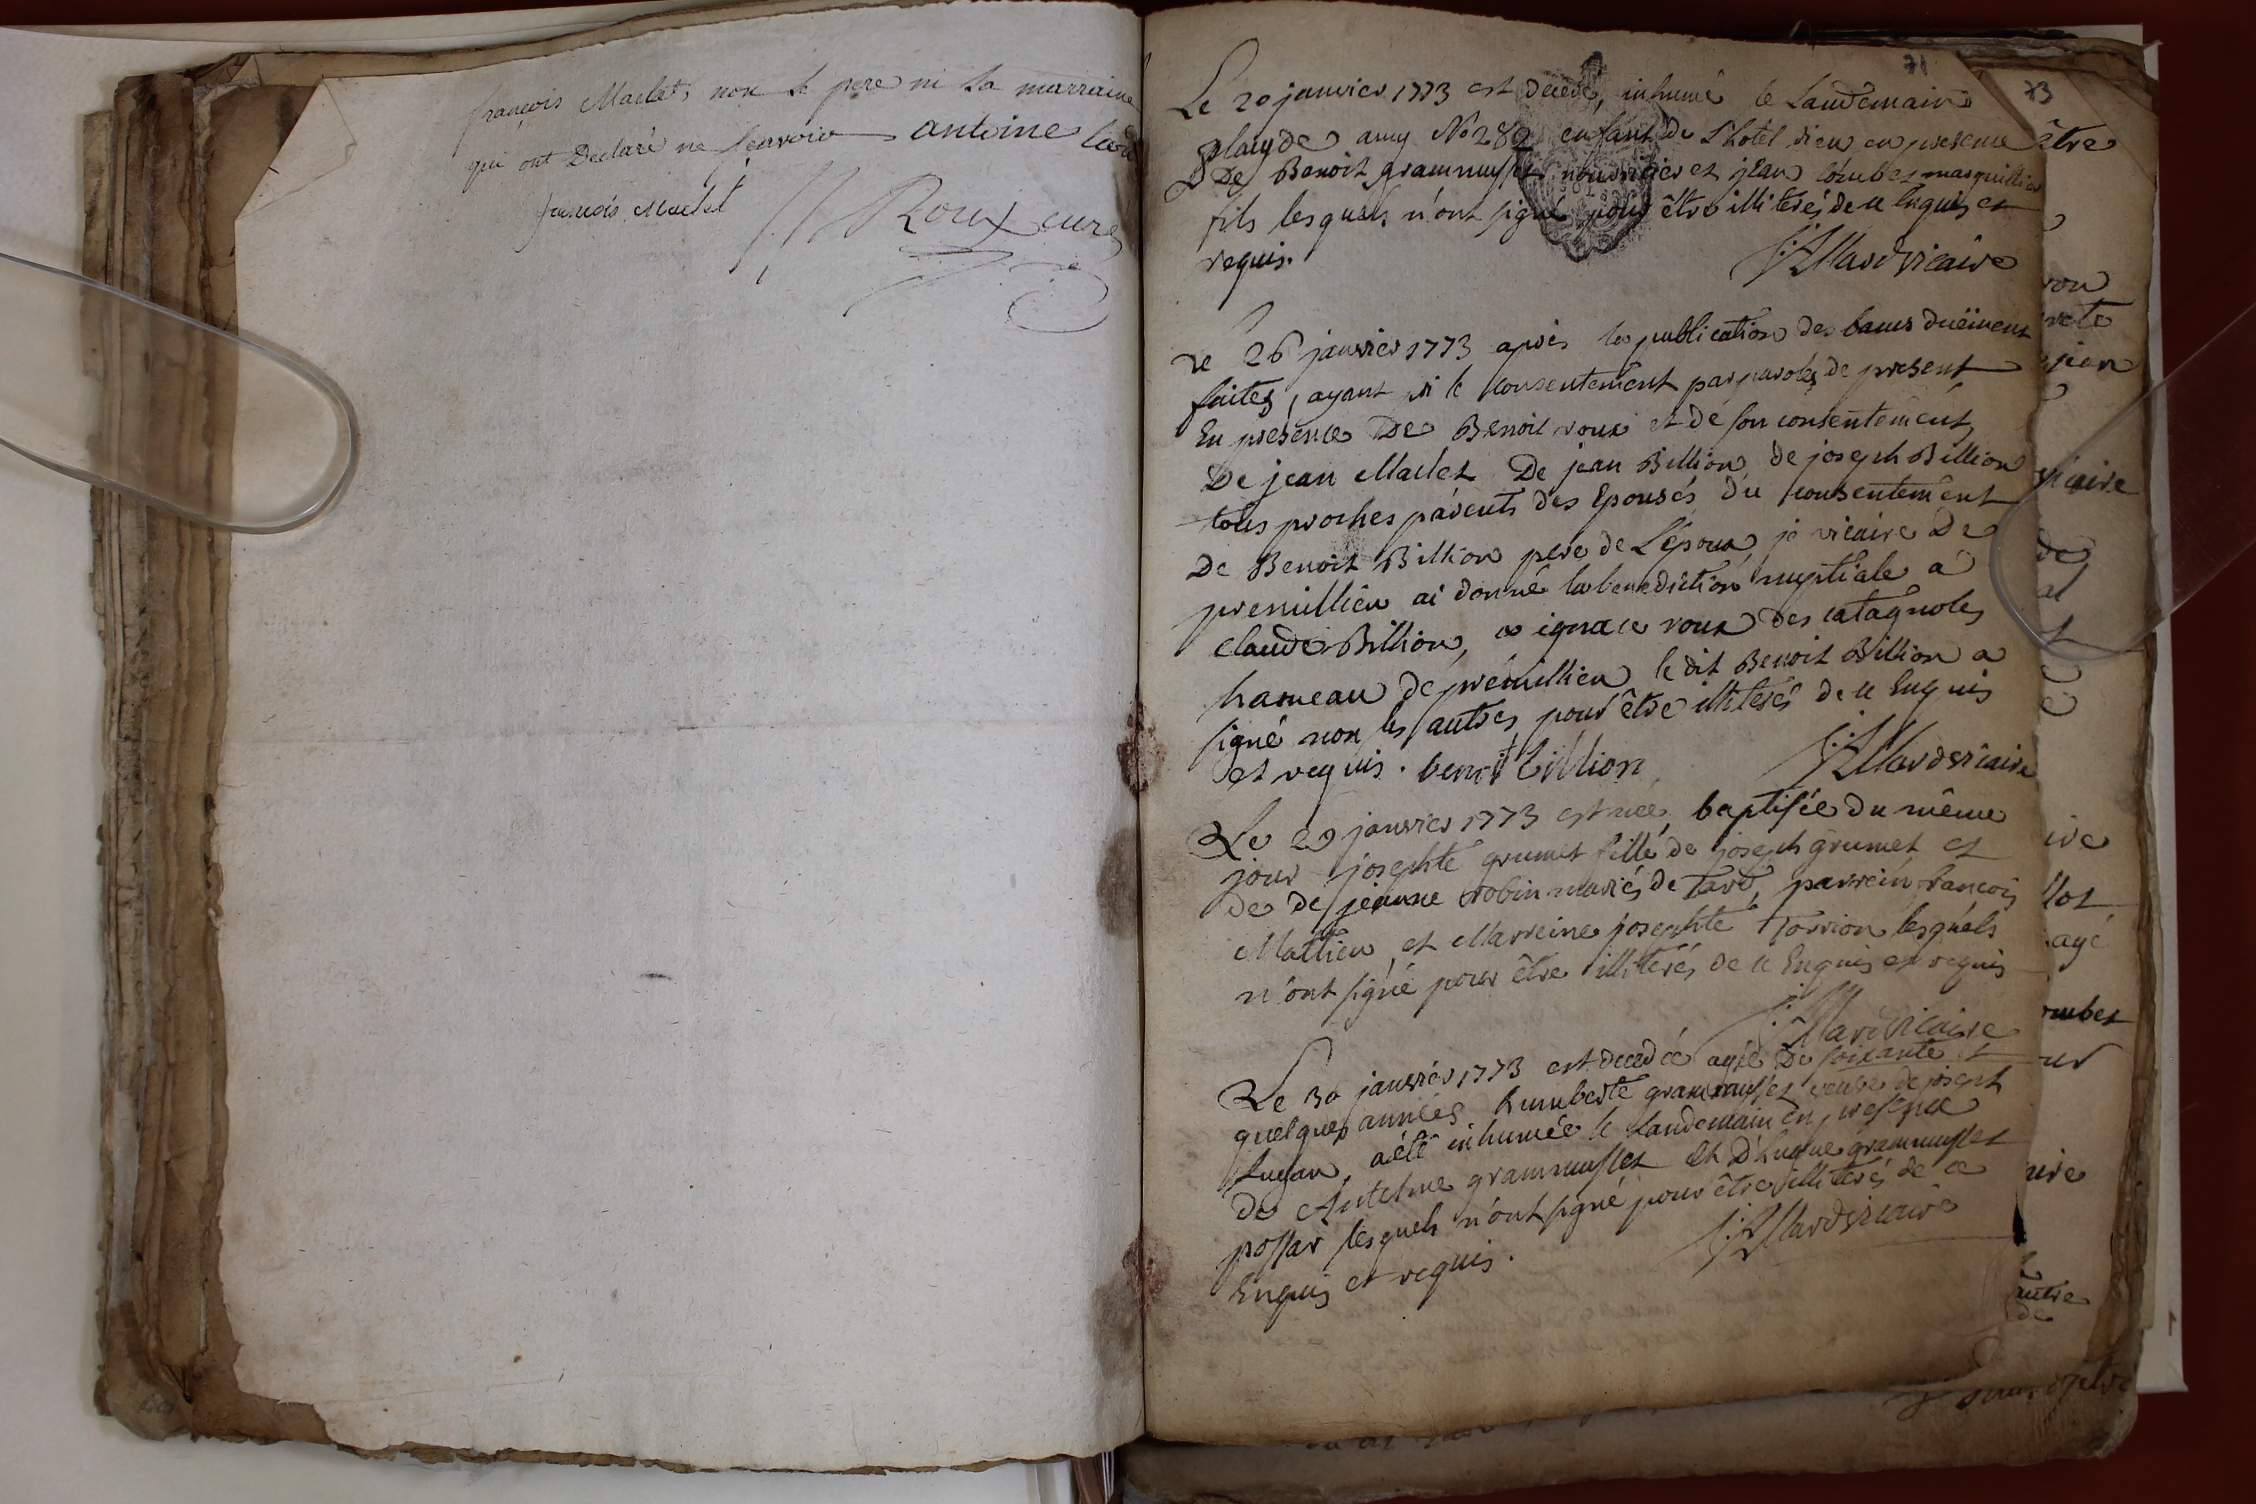 françois Maclet, non le pere ni la marraine
qui ont Declaré ne sçavoir antoine
françois Maclet
Roux curé
71
Le 20 janvier 1773 est decedé, inhumé le Landemain
amy No 282 enfant de L'hotel dieu en presence
De Benoit grammusset nourricier et jean combet marguillier
fils lesquels n'ont signé pour être illiterés de ce Enquis et
requis.
vicaire
Le 26 janvier 1773 après les publication des bans duëment
faites, ayant le consentement par paroles de present
En presence De Benoit roux et de son consentement,
De jean Maclet De jean Billion, de joseph Billion
tous proches parents des Epousés du consentement
De Benoit Billion pere de L'epoux, je vicaire De
premillieu ai donné la benediction nuptiale a
claude Billion, & ignace roux des catagnoles
hameau de premillieu le dit Benoit Billion a
signé non les autres pour être illiterés de ce Enquis
et requis. benoit billion
vicaire
Le 29 janvier 1773 est née, baptisée du même
jour josephte grumet fille de joseph grumet et
de de jeanne robin mariés de Tard, parrein françois
Mattieu, et Marreine josephte lesquels
n'ont signé pour être illiterés de ce Enquis et requis
vicaire
Le 30 janvier 1773 est decedée agée De soixante et
quelques années humberte grammusset veuve de joseph
Lugan, a été inhumée le Landemain en presence
de Antelme grammusset et D'hugue grammusset
possar lesquels n'ont signé pour être illiterés de ce
Enquis et requis.
vicaire
73
être
jean
vicaire
de
agé